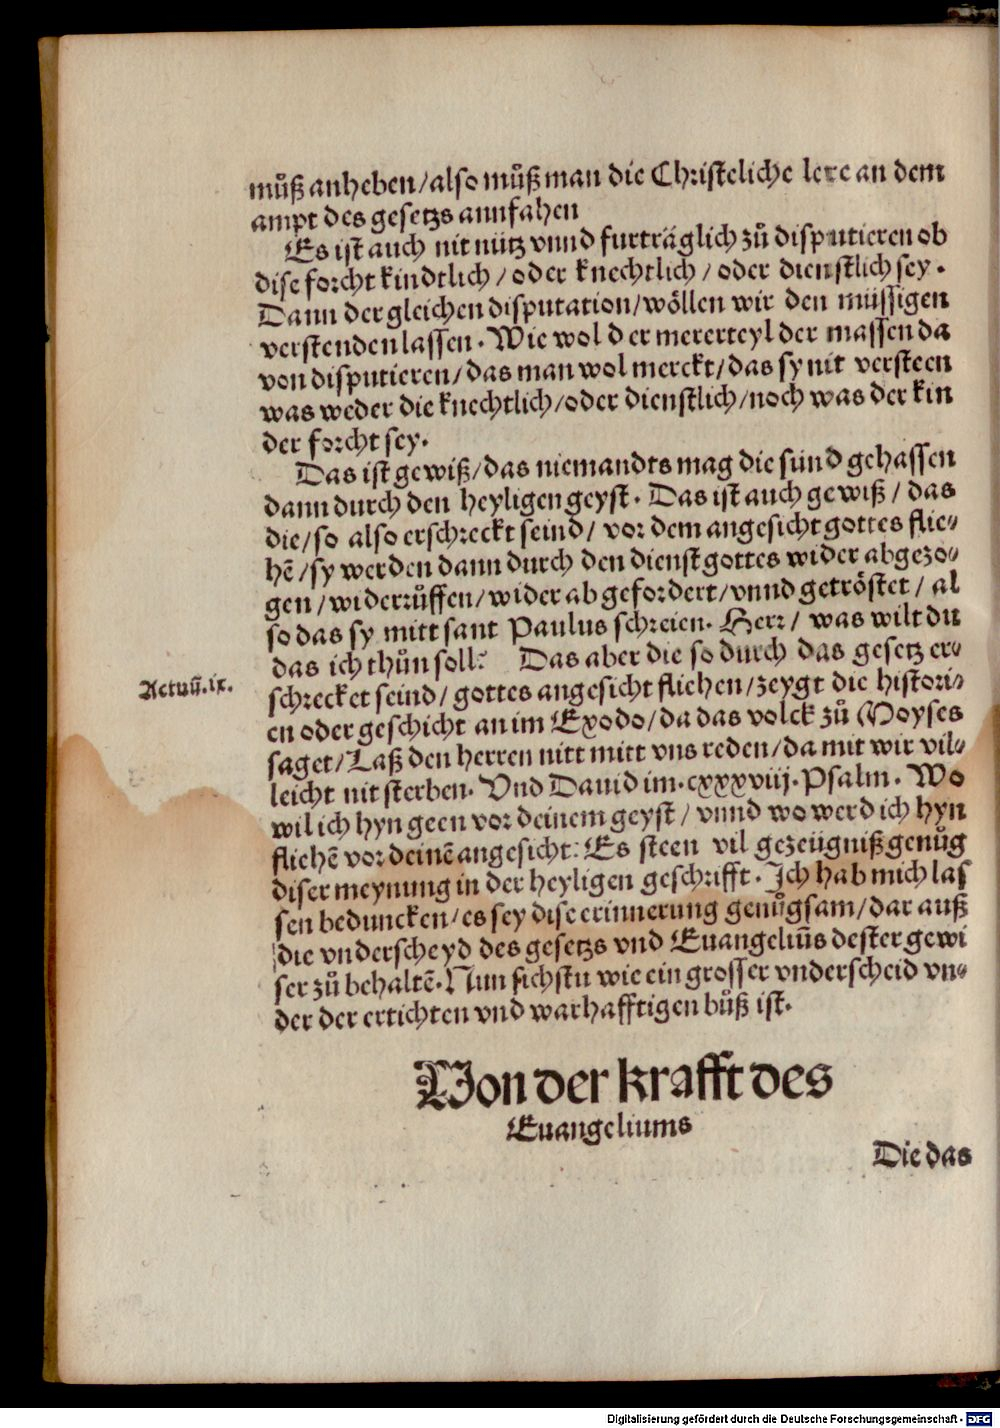 můß anheben/also můß man die Christeliche lere an dem
ampt des gesetzs annfahen
Es ist auch nit nütz vnnd furträglich zů disputieren ob
dise forcht kindtlich/oder knechtlich/oder dienstlich sey.
Dann der gleichen disputation/wöllen wir den müssigen
verstenden lassen. Wie wol der mererteyl der massen da
von disputieren/das man wol merckt/das sy nit versteen
was weder die knechtlich/oder dienstlich/noch was der kin
der forcht sey.
Das ist gewiß/das niemandts mag die sünd gehassen
dann durch den heyligen geyst. Das ist auch gewiß/das
die/so also erschreckt seind/vor dem angesicht gottes flie⸗
hē/sy werden dann durch den dienst gottes wider abgezo⸗
gen/widerrüffen/wider ab gefordert/vnnd getröstet/al
so das sy mitt sant Paulus schreien. Herr/was wilt du
das ich thůn soll? Das aber die so durch das gesetz er⸗
Actuū.ix.
schrecket seind/gottes angesicht fliehen/zeygt die histori⸗
en oder geschicht an im Exodo/da das volck zů Moyses
saget/Laß den herren nitt mitt vns reden/da mit wir vil⸗
leicht nit sterben. Vnd Dauid im.cxxxviij.Psalm. Wo
wil ich hyn geen vor deinem geyst/vnnd wo werd ich hyn
fliehē vor deinē angesicht: Es steen vil gezeügniß genůg
diser meynung in der heyligen geschrifft. Ich hab mich las
sen beduncken/es sey dise erinnerung genůgsam/dar auß
die vnderscheyd des gesetzs vnd Euangeliūs dester gewi
ser zů behaltē. Nun sichstu wie ein grosser vnderscheid vn⸗
der der ertichten vnd warhafftigen bůß ist.
Von der krafft des
Euangeliums
Die das
Digitalisierung gefördert durch die Deutsche Forschungsgemeinschaft - DFG